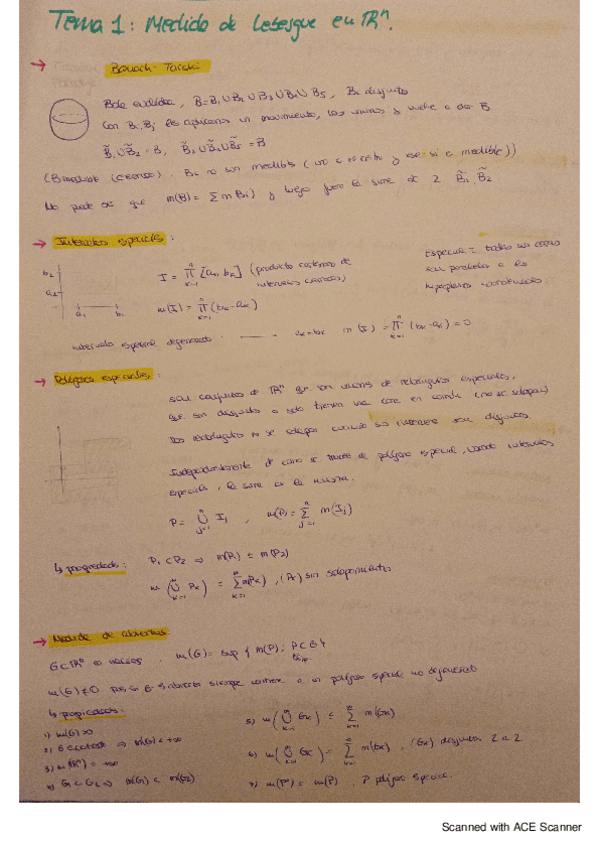 Tema 1: Medida de Lebesgue en ℝⁿ.
→ Banach-Tarski
Bola euclídea, B = B₁ ∪ B₂ ∪ B₃ ∪ B₄ ∪ B₅, Bₖ disjuntos
B̃₁ ∪ B̃₂ = B, B̃₃ ∪ B̃₄ ∪ B̃₅ = B
No puede ser que m(B) = Σ m(Bᵢ) y luego la suma de 2
→ Intervalos especiales:
b₂
a₂
a₁ b₁
I = ∏ₖ₌₁ⁿ [aₖ, bₖ] (producto cartesiano de intervalos cerrados)
m(I) = ∏ₖ₌₁ⁿ (bₖ - aₖ)
Especial = todas sus caras
son paralelas a los
hiperplanos
intervalo especial degenerado aₖ = bₖ m(I) = ∏ₖ₌₁ⁿ (bₖ - aₖ) = 0
→ Polígonos especiales:
son conjuntos de ℝⁿ que son uniones de rectángulos especiales,
que son disjuntos o solo tienen una cara en común (no se solapan)
Dos rectángulos no se solapan cuando sus interiores son disjuntos.
Independientemente de como se trocee el polígono especial, usando intervalos
especiales, la suma es la misma.
P = ⋃ⱼ₌₁ⁿ Iⱼ, m(P) = Σⱼ₌₁ⁿ m(Iⱼ)
↳ propiedades: P₁ ⊂ P₂ ⇒ m(P₁) ≤ m(P₂)
m(⋃ₖ₌₁ Pₖ) = Σₖ₌₁ m(Pₖ), (Pₖ) sin solapamientos
→ Medida de abiertos:
G ⊂ ℝⁿ no vacíos, m(G) = sup { m(P): P ⊂ G }
m(G) ≠ 0 pues G abierto siempre contiene a un polígono especial no degenerado
↳ propiedades:
1) m(G) > 0
2) G acotado ⇒ m(G) < +∞
3) m(ℝⁿ) = +∞
4) G₁ ⊂ G₂ ⇒ m(G₁) ≤ m(G₂)
5) m(⋃ₖ₌₁ Gₖ) ≤ Σₖ₌₁ m(Gₖ)
6) m(⋃ₖ₌₁ Gₖ) = Σₖ₌₁ m(Gₖ), (Gₖ) disjuntos 2 a 2
7) m(P°) = m(P), P polígono especial.
Scanned with ACE Scanner